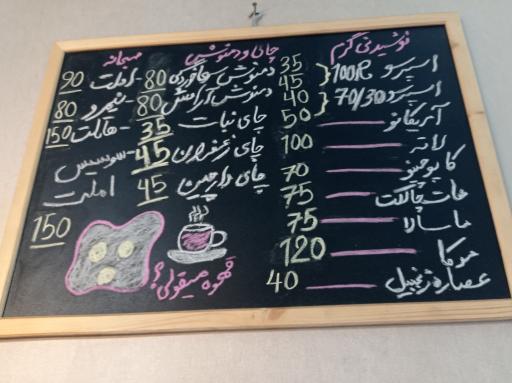 نوشیدنی گرم
اسپرسو 100R 35
45
اسپرسو 70/30 40
50
آمریکانو
لاته 100
کاپوچینو 70
هات چاکلت 75
ماسالا 75
موکا 120
عصاره زنجبیل 40
چای و دمنوش
دمنوش گاوزبان 80
دمنوش آرامش 80
چای نبات 35
چای زعفران 45
چای دارچین 45
قهوه میقولی؟
صبحانه
املت 90
نیمرو 80
املت 150
سوسیس
املت
150